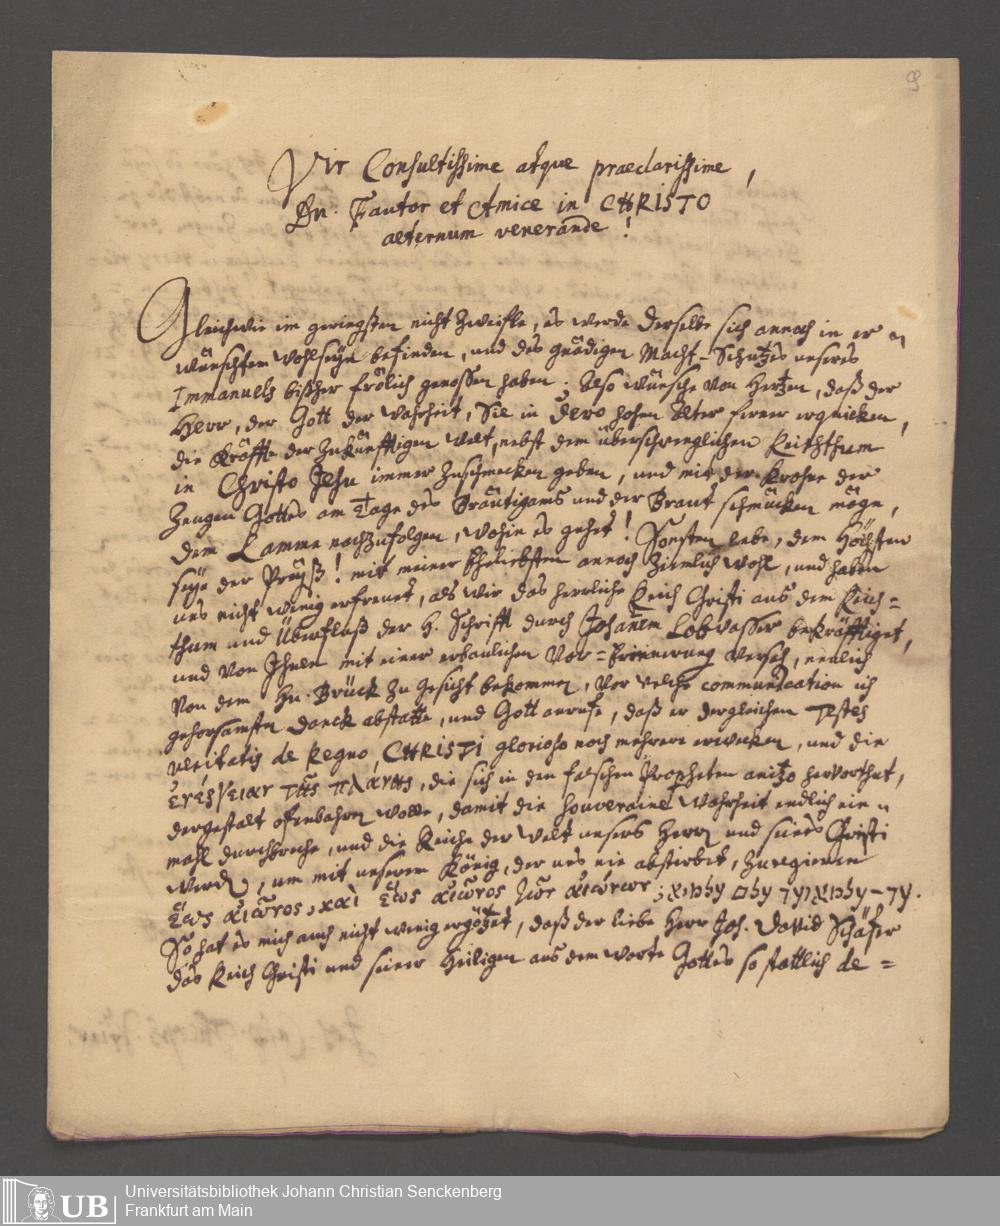 9
Vir Consultissime atque praeclarissime,
Dn. Fautor et Amice in CHRISTO
aeternum venerande!
Gleichwie im geringsten nicht zweifle, es werde derselbe sich annoch in er
wünschtem Wohlseyn befinden, und des gnädigen Macht-Schutzes unseres
Immanuels bißher frölich genossen haben; Also wünsche von Hertzen, daß der
Herr, der Gott der Wahrheit, Sie in dero hohen Alter ferner erquicken,
die Kräffte der Zukünfftigen Welt, nebst dem überschwenglichen Reichthum
in Christo Jesu immer zuschmecken geben, und mit der Krohne der
Zeugen Gottes am Tage des Bräutigams und der Braut schmücken möge,
dem Lamme nachzufolgen, wohin es gehet! Sonsten lebe, dem Höchsten
seye der Preyß! mit meiner Eheliebsten annoch ziemlich wohl, und haben
uns nicht wenig erfreuet, als wir das herrliche Reich Christi aus dem Reich=
thum und Überfluß der H. Schrifft durch Johannem Lobwasser bekräfftiget,
und von Ihnen mit einer erbaulichen Vor=Erinnerung versehen, neulich
von dem Hn. Brück zu Gesicht bekommen, vor welche communication ich
gehorsamsten Danck abstatte, und Gott anrufe, daß er dergleichen Testes
veritatis de Regno CHRISTI glorioso noch mehrere erwecken, und die
ἐνέργειαν τῆς πλάνης, die sich in den falschen Propheten anitzo hervorthut,
dergestalt offenbahren wolle, damit die souveraine Wahrheit endlich ein
mahl durchbreche, und die Reiche der Welt unsers Herrn und seines Christi
werden, um mit unserem König, der uns nie abstirbet, zuregieren
ἕως αἰῶνος, καὶ ἕως αἰῶνος τῶν αἰώνων;
So hat es mich auch nicht wenig ergötzet, daß der liebe Herr Joh. David Schäfer
das Reich Christi und seiner Heiligen aus dem Worte Gottes so stattlich de=
Universitätsbibliothek Johann Christian Senckenberg
Frankfurt am Main
UB